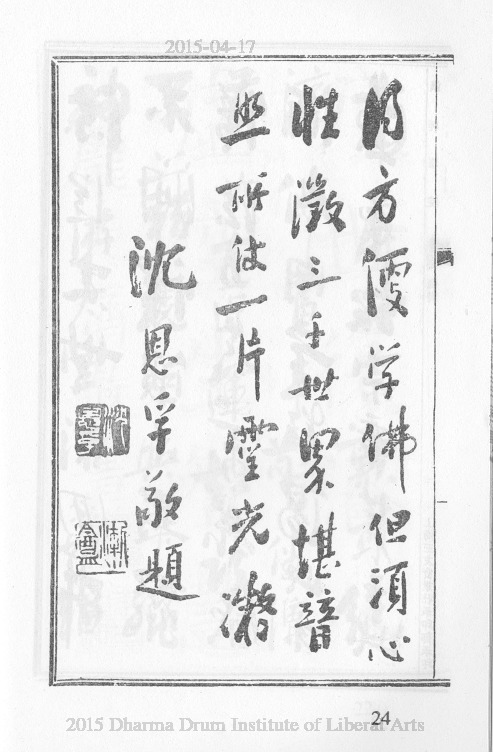 2015-04-17
方便学佛但須心
性澂三千世界堪普
照所仗一片靈光
沈恩孚敬題
沈恩孚
漸盦
24
2015 Dharma Drum Institute of Liberal Arts